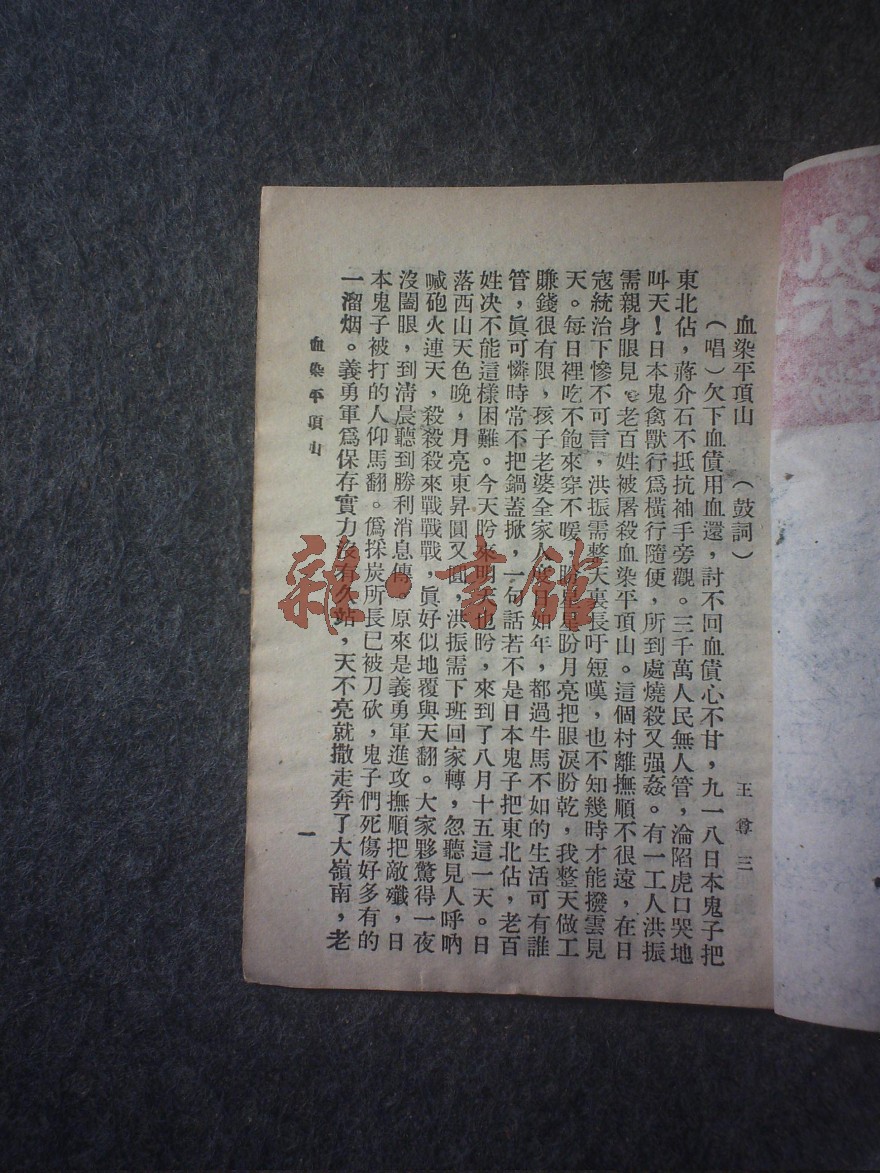 血染平頂山　　（鼓詞）　　王尊三
（唱）欠下血債用血還，討不回血債心不甘，九一八日本鬼子把
東北佔，蔣介石不抵抗袖手旁觀。三千萬人民無人管，淪陷虎口哭地
叫天！日本鬼禽獸行爲橫行隨便，所到處燒殺又强姦。有一工人洪振
需親身眼見。老百姓被屠殺血染平頂山。這個村離撫順不很遠，在日
寇統治下慘不可言，洪振需整天裏長吁短嘆，也不知幾時才能撥雲見
天。每日裡吃不飽來穿不暖，盼星星盼月亮把眼淚盼乾，我整天做工
賺錢很有限，孩子老婆全家人度日如年，都過牛馬不如的生活可有誰
管，眞可憐時常不把鍋蓋掀，一句話若不是日本鬼子把東北佔，老百
姓决不能這樣困難。今天盼來明天也盼，來到了八月十五這一天。日
落西山天色晚，月亮東昇圓又圓，洪振需下班回家轉，忽聽見人呼吶
喊砲火連天，殺殺殺來戰戰戰，眞好似地覆與天翻。大家夥驚得一夜
沒闔眼，到淸晨聽到勝利消息傳，原來是義勇軍進攻撫順把敵殲，日
本鬼子被打的人仰馬翻。僞採炭所長已被刀砍，鬼子們死傷好多有的
一溜烟。義勇軍爲保存實力沒有久站，天不亮就撤走奔了大嶺南，老
血染平頂山
一
雜·書館
染